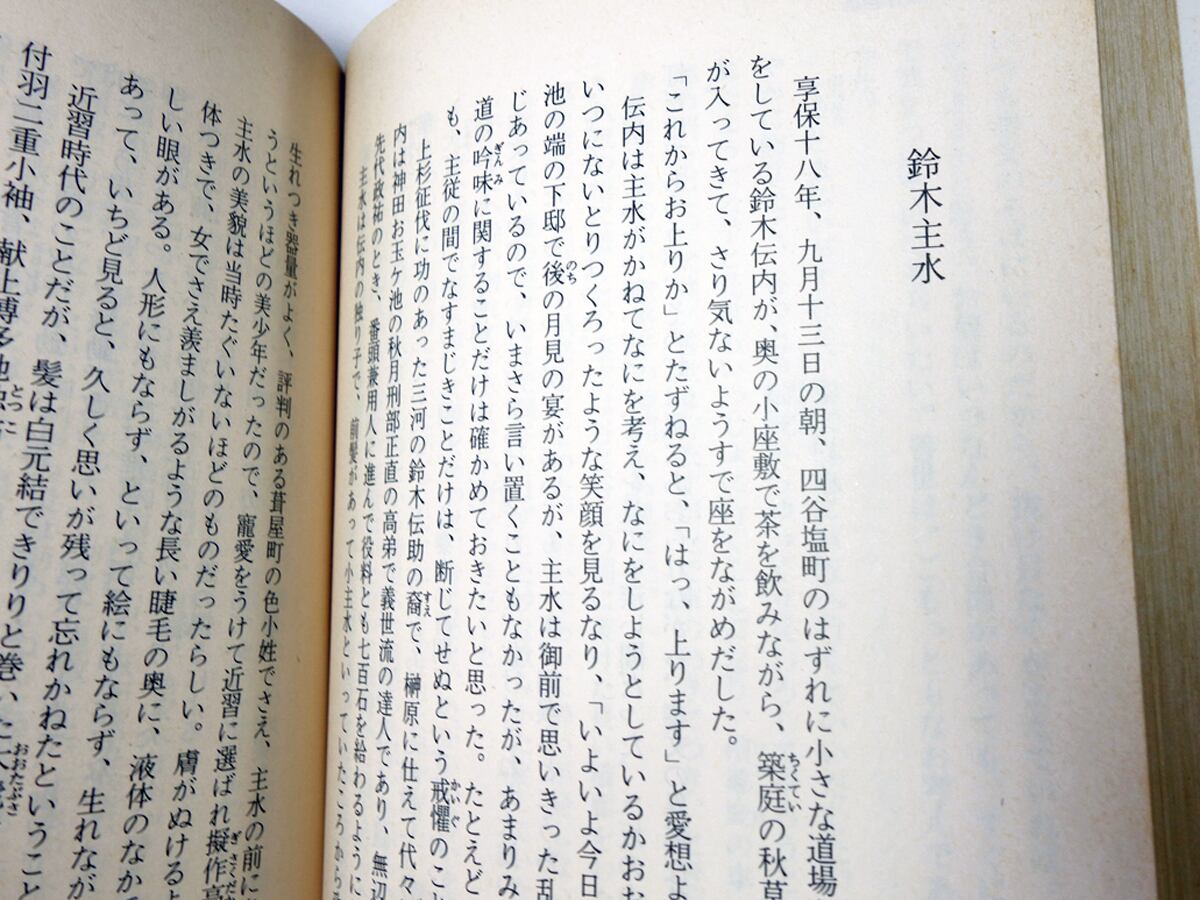 鈴木主水
享保十八年、九月十三日の朝、四谷塩町のはずれに小さな道場
をしている鈴木伝内が、奥の小座敷で茶を飲みながら、築庭の秋草
ちくてい
が入ってきて、さり気ないようすで座をながめだした。
「これからお上りか」とたずねると、「はっ、上ります」と愛想よ
伝内は主水がかねてなにを考え、なにをしようとしているかおお
いつにないとりつくろったような笑顔を見るなり、「いよいよ今日
池の端の下邸で後の月見の宴があるが、主水は御前で思いきった乱
のち
じあっているので、いまさら言い置くこともなかったが、あまりみ
道の吟味に関することだけは確かめておきたいと思った。たとえど
ぎんみ
も、主従の間でなすまじきことだけは、断じてせぬという戒懼のこと
かいぐ
上杉征伐に功のあった三河の鈴木伝助の裔で、榊原に仕えて代々
すえ
内は神田お玉ケ池の秋月刑部正直の高弟で義世流の達人であり、無辺
先代政祐のとき、番頭兼用人に進んで役料とも七百石を給わるように
主水は伝内の独り子で、前髪があって小主水といっていたころから
生れつき器量がよく、評判のある葺屋町の色小姓でさえ、主水の前に
うというほどの美少年だったので、寵愛をうけて近習に選ばれ擬作高
ぎさくだ
主水の美貌は当時たぐいないほどのものだったらしい。膚がぬけるよ
体つきで、女でさえ羨ましがるような長い睫毛の奥に、液体のなか
しい眼がある。人形にもならず、といって絵にもならず、生れなが
あって、いちど見ると、久しく思いが残って忘れかねたということ
近習時代のことだが、髪は白元結できりりと巻いた
おおたぶさ
付羽二重小袖、献上博多
とつこ